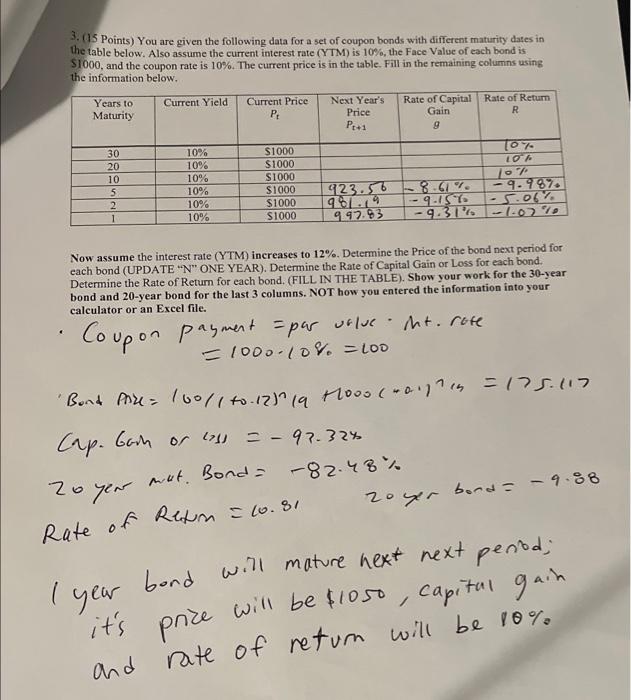 3. (15 Points) You are given the following data for a set of coupon bonds with different maturity dates in
the table below. Also assume the current interest rate (YTM) is 10%, the Face Value of each bond is
$1000, and the coupon rate is 10%. The current price is in the table. Fill in the remaining columns using
the information below.
Years to Maturity Current Yield Current Price Pt Next Year's Price Pt+1 Rate of Capital Gain g Rate of Return R
30 10% $1000 10%
20 10% $1000 10%
10 10% $1000 10%
5 10% $1000 923.56 -8.61% -9.98%
2 10% $1000 981.19 -9.15% -5.06%
1 10% $1000 997.83 -9.31% -1.07%
Now assume the interest rate (YTM) increases to 12%. Determine the Price of the bond next period for
each bond (UPDATE "N" ONE YEAR). Determine the Rate of Capital Gain or Loss for each bond.
Determine the Rate of Return for each bond. (FILL IN THE TABLE). Show your work for the 30-year
bond and 20-year bond for the last 3 columns. NOT how you entered the information into your
calculator or an Excel file.
Coupon payment = par value · Int. rate
= 1000·10% = 100
Bond Price = 100/(1+0.12)^19 = 175.117
Cap. Gain or loss = -97.32%
20 year mat. Bond = -82.48%
Rate of Return = 10.81 20 yer bond = -9.88
1 year bond will mature next next period;
it's prize will be $1050, capital gain
and rate of return will be 10%